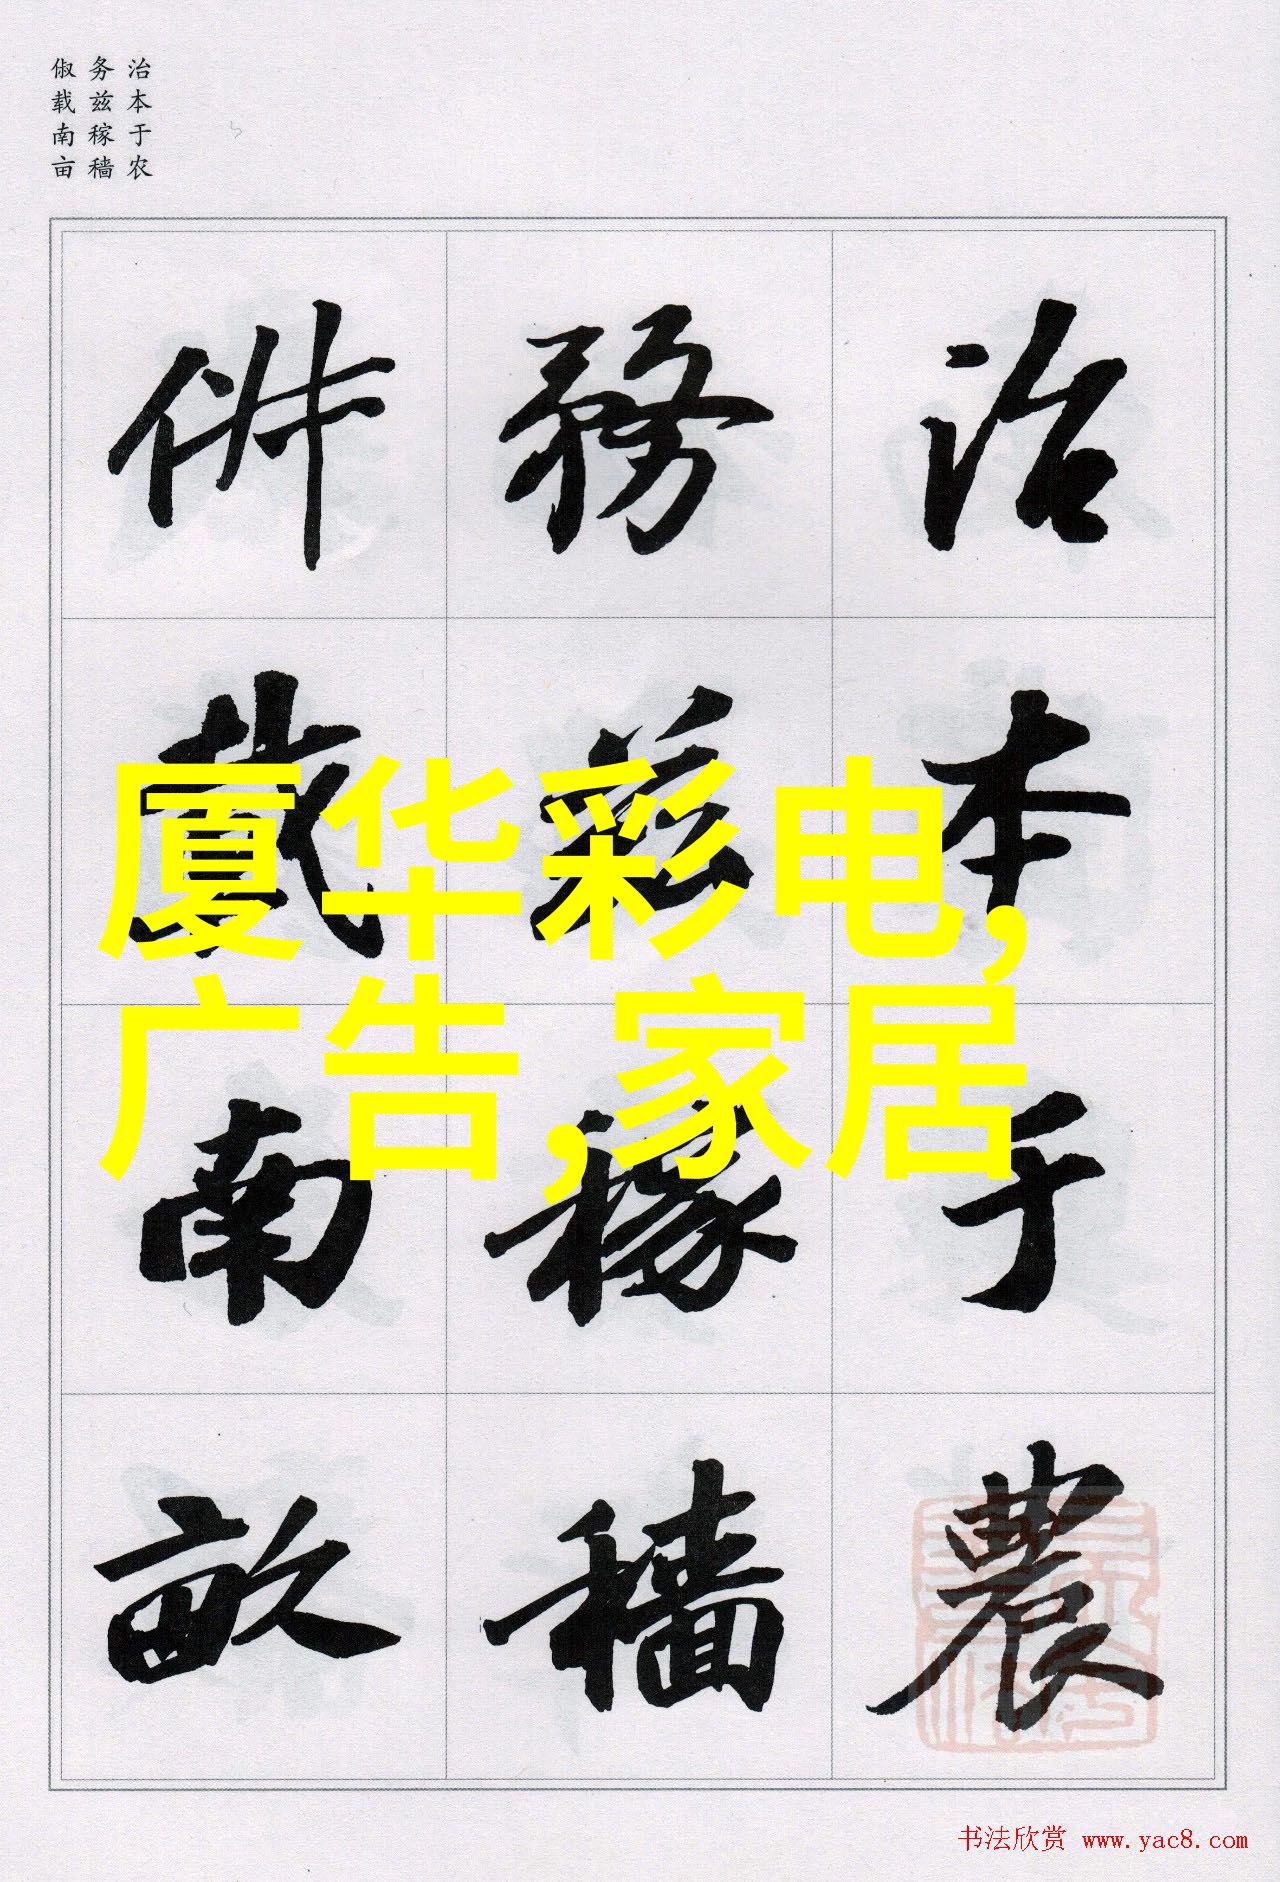 治本于农
务兹稼穑
俶载南亩
治本于農
務茲稼穡
俶載南畝
厦华彩电,
广告,家居
书法欣赏 www.yac8.com